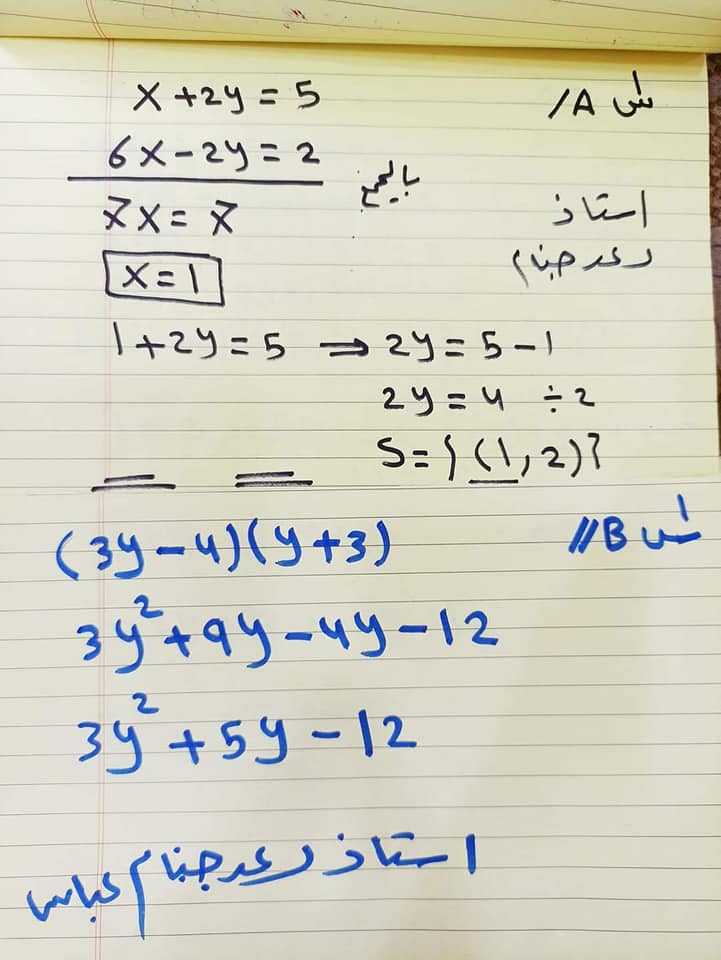 س1 A/
x + 2y = 5
6x - 2y = 2
بالجمع
7x = 7
استاذ
رعد جبنام
x = 1
1 + 2y = 5 ⇒ 2y = 5 - 1
2y = 4 ÷ 2
S = {(1, 2)}
س1 B//
(3y - 4)(y + 3)
3y² + 9y - 4y - 12
3y² + 5y - 12
استاذ رعد جبنام عباس